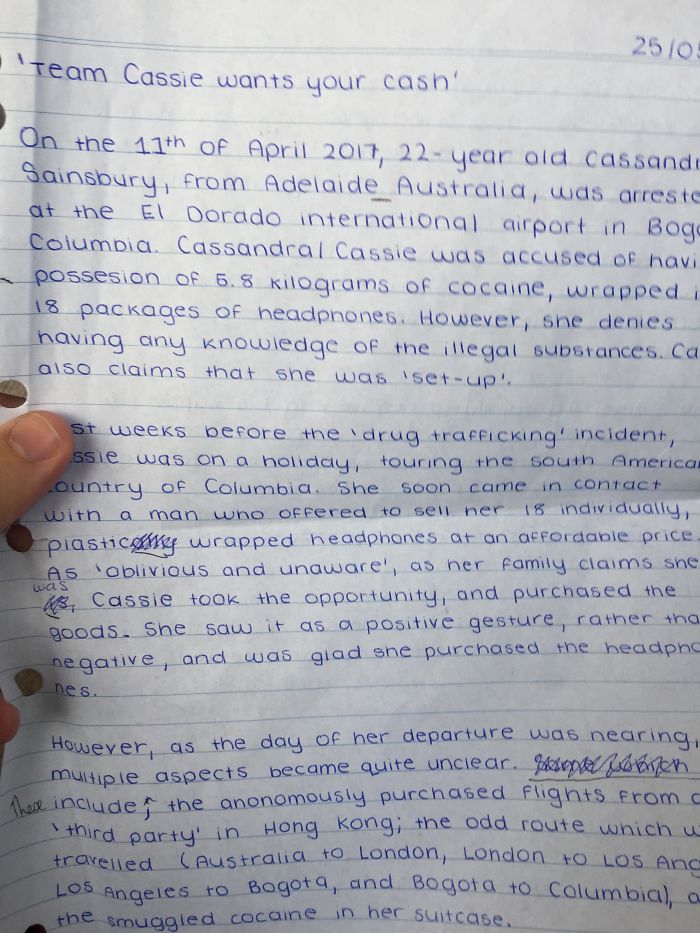 25/05
'Team Cassie wants your cash'
On the 11th of April 2017, 22-year old Cassandr
Sainsbury, from Adelaide Australia, was arreste
at the El Dorado international airport in Bogo
Columbia. Cassandral Cassie was accused of havi
possesion of 5.8 kilograms of cocaine, wrapped i
18 packages of headphones. However, she denies
having any knowledge of the illegal substances. Ca
also claims that she was 'set-up'.
st weeks before the 'drug trafficking' incident,
ssie was on a holiday, touring the south America
ountry of Columbia. She soon came in contact
with a man who offered to sell her 18 individually,
plastic wrapped headphones at an affordable price.
As 'oblivious and unaware', as her family claims she
was, Cassie took the opportunity, and purchased the
goods. She saw it as a positive gesture, rather tha
negative, and was glad she purchased the headpho
nes.
However, as the day of her departure was nearing,
multiple aspects became quite unclear.
These include; the anonomously purchased flights from a
'third party' in Hong Kong; the odd route which w
travelled (Australia to London, London to Los Ang
Los Angeles to Bogota, and Bogota to Columbia), a
the smuggled cocaine in her suitcase.